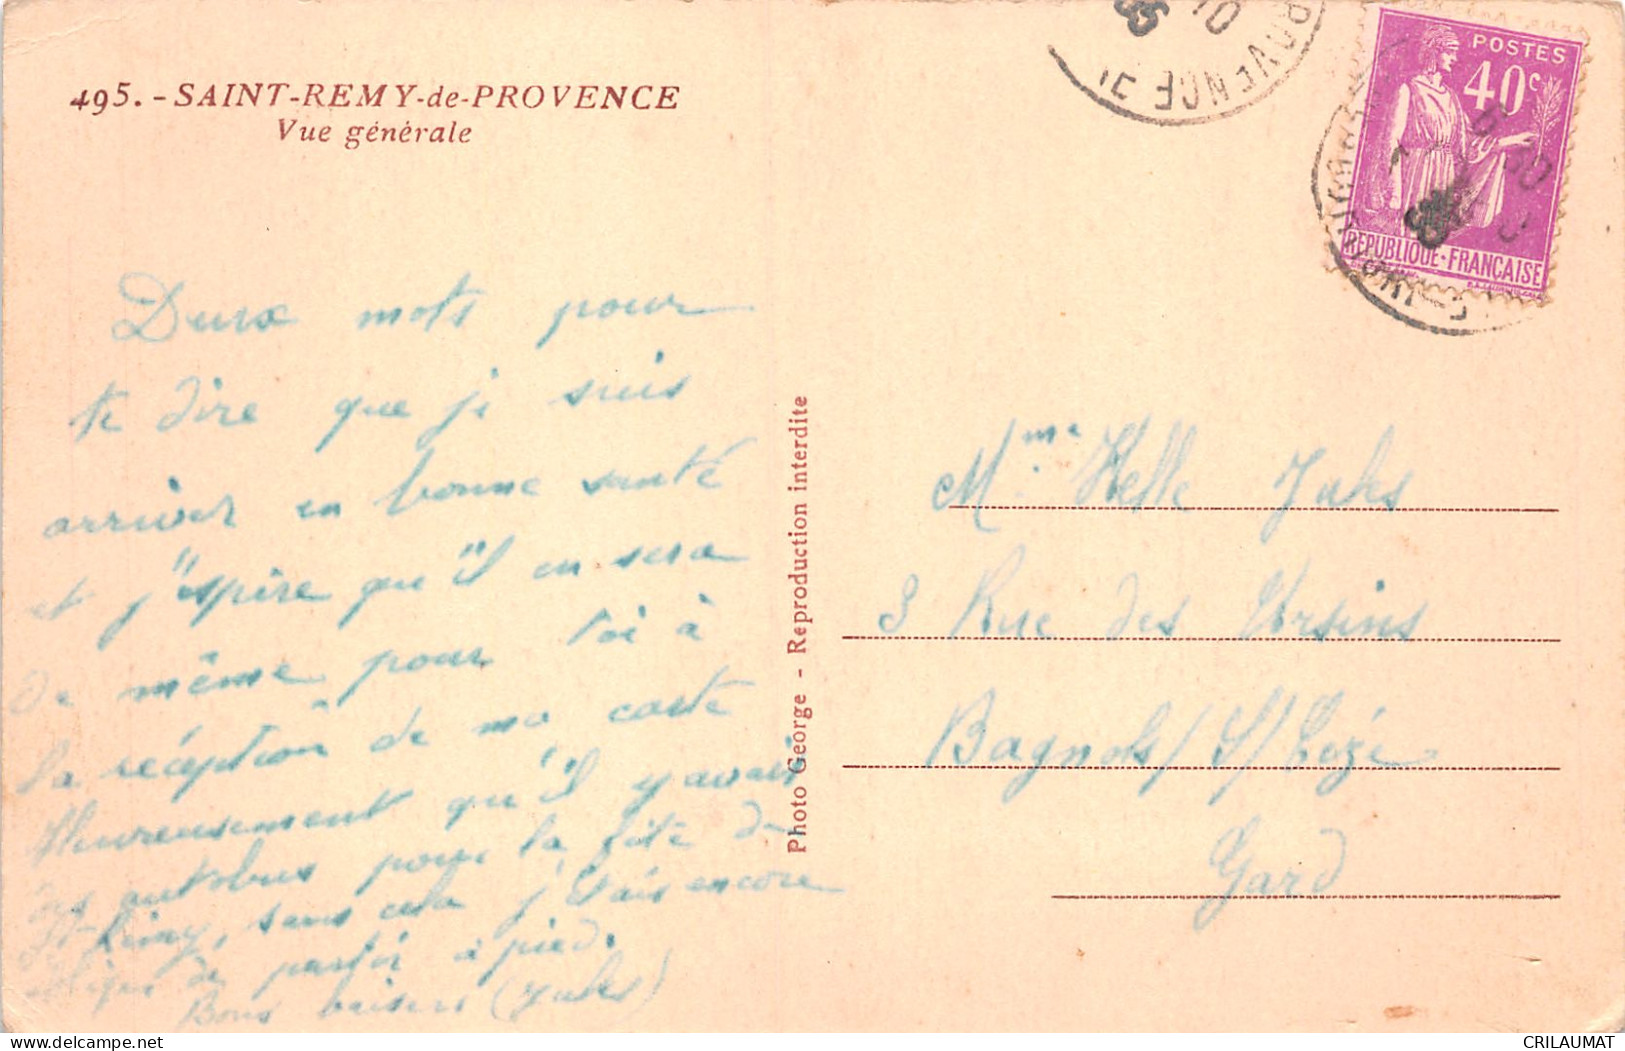 495. - SAINT-REMY-de-PROVENCE
Vue générale
POSTES
40c
REPUBLIQUE-FRANÇAISE
Deux mots pour
te dire que je suis
arriver en bonne santé
et j'espire qu'il en sera
de même pour toi à
la réception de ma carte
Heureusement qu'il y avais
des autobus pour la fête de
St-Rémy, sans cela j'étais encore
de partir à pied.
Bons baisers (Jules)
Photo George - Reproduction interdite
Mme Helle Jules
3 Rue des Ursins
Bagnols/S/Cèze
Gard
CRILAUMAT